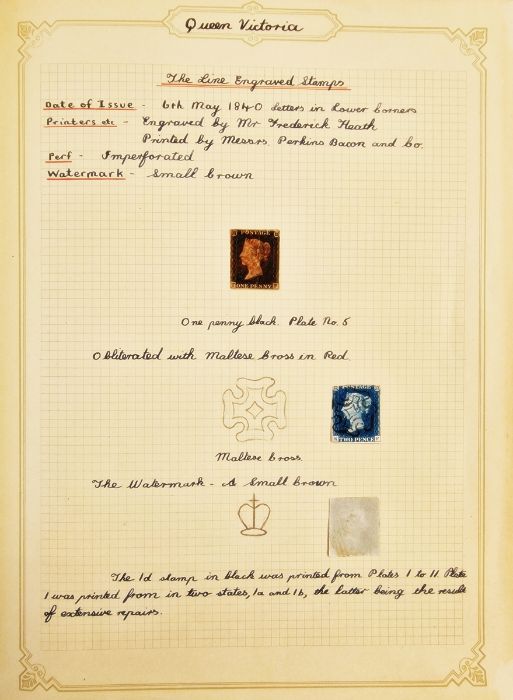 Queen Victoria
The Line Engraved Stamps
Date of Issue - 6th May 1840 Letters in Lower Corners
Printers etc - Engraved by Mr Frederick Heath
Printed by Messrs. Perkins Bacon and Co.
Perf - Imperforated
Watermark - Small Crown
POSTAGE
ONE PENNY
One penny black. Plate No. 5
Obliterated with Maltese Cross in Red.
POSTAGE
TWO PENCE
Maltese Cross.
The Watermark - A Small Crown
The 1d stamp in black was printed from Plates 1 to 11. Plate
1 was printed from in two states, 1a and 1b, the latter being the result
of extensive repairs.